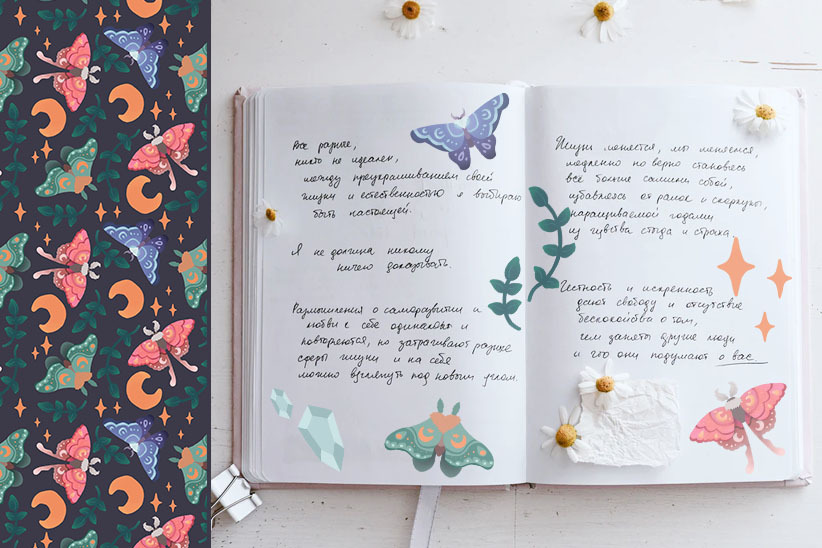 Все разные,
никто не идеален,
между приукрашиванием своей
жизни и естественностью я выбираю
быть настоящей.
Я не должна никому
ничего доказывать.
Размышления о саморазвитии и
любви к себе одинаково и
повторяются, но затрагивают разные
сферы жизни и на себя
можно взглянуть под новым углом.
Жизнь меняется, мы меняемся,
медленно но верно становясь
всё больше самими собой,
избавляясь от рамок и скорлупы,
наращиваемой годами
из чувства стыда и страха.
Честность и искренность
дают свободу и отсутствие
беспокойства о том,
чем заняты другие люди
и что они подумают о вас.